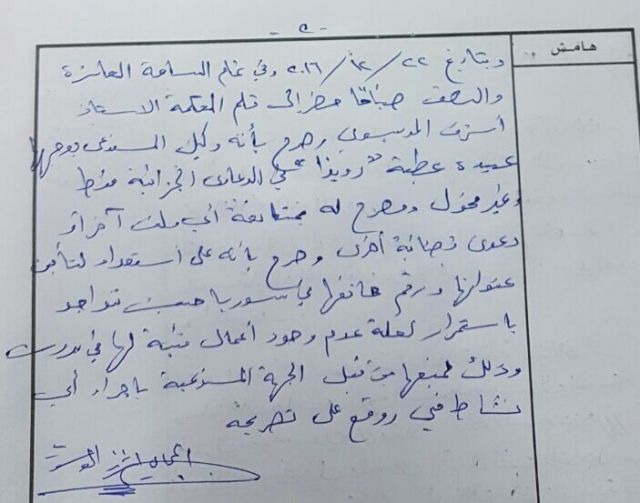 - ٢ -
هامش
وبتاريخ ٢٢/١٢/٢٠١٦ وفي تمام الساعة العاشرة
والنصف صباحًا حضر الى قلم المحكمة الاستاذ
أشرف الموسوي وصرح بأنه وكيل المستدعى بوجهها
عبيدة عطية "رويدا" في الدعاوى الجزائية فقط
وغير مخول ومصرح له بمتابعة أي ملف آخر أو
دعوى قضائية أخرى وصرح بأنه على استعداد لتأمين
عنوانها ورقم هاتفها في سوريا حيث تتواجد
باستمرار لعلة عدم وجود أعمال فنية لها في بيروت
وذلك لمنعها من قبل الجهة المستدعية بإجراء أي
نشاط فني ووقع على تصريحه